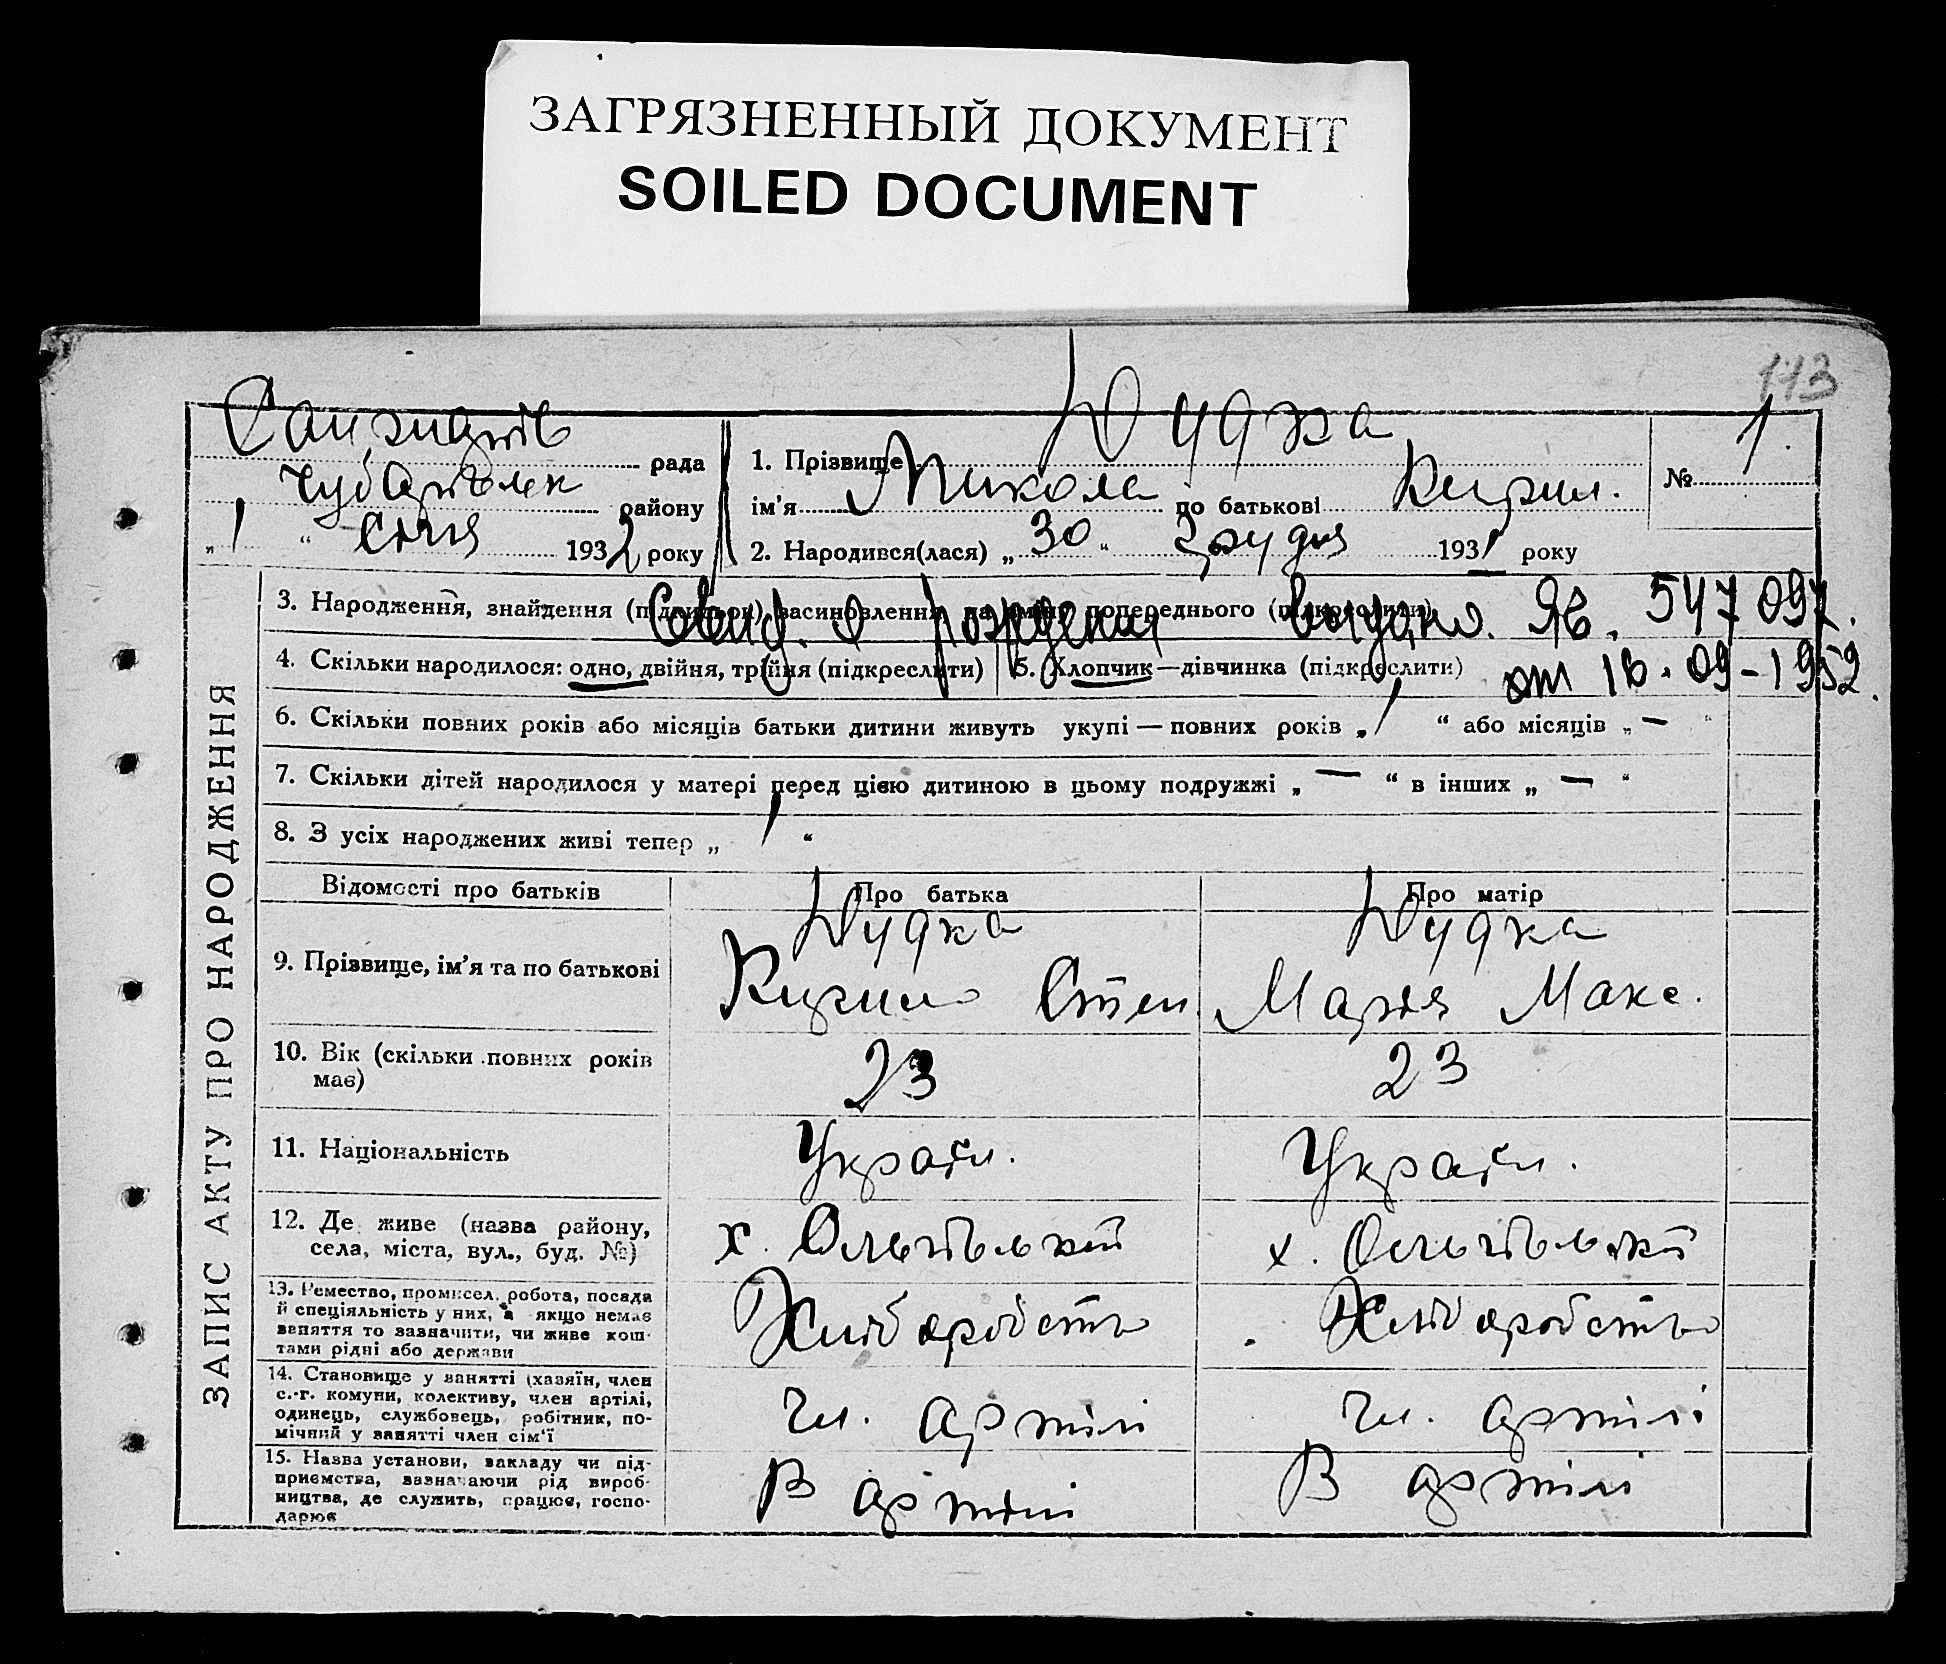 ЗАГРЯЗНЕННЫЙ ДОКУМЕНТ
SOILED DOCUMENT
113
рада
Чубарівськ району
„ 1 “ січня 1932 року
1. Прізвище Дудка
ім'я Микола по батькові Кирил.
2. Народився(лася) „ 30 “ грудня 1931 року
№ 1.
ЗАПИС АКТУ ПРО НАРОДЖЕННЯ
3. Народження, знайдення (підкиньок), засиновлення, на зміну попереднього (підкреслити)
Свид. о рождении выдано. ЯБ. 547097.
от 16.09-1952.
4. Скільки народилося: одно, двійня, трійня (підкреслити)
5. Хлопчик—дівчинка (підкреслити)
6. Скільки повних років або місяців батьки дитини живуть укупі — повних років „ 1 “ або місяців „ — “
7. Скільки дітей народилося у матері перед цією дитиною в цьому подружжі „ — “ в інших „ — “
8. З усіх народжених живі тепер „ 1 “
Відомості про батьків
Про батька
Про матір
9. Прізвище, ім'я та по батькові
Дудка
Кирило Степ.
Дудка
Марія Макс.
10. Вік (скільки повних років
має)
23
23
11. Національність
Україн.
Україн.
12. Де живе (назва району,
села, міста, вул., буд. №)
х.
х.
13. Ремество, промисел, робота, посада
й спеціяльність у них, а якщо немає
заняття то зазначити, чи живе кош-
тами рідні або держави
Хліборобство
Хліборобство
14. Становище у занятті (хазяїн, член
с.-г. комуни, колективу, член артілі,
одинець, службовець, робітник, по-
мічний у занятті член сім'ї
Чл. артілі
Чл. артілі
15. Назва установи, закладу чи під-
приємства, зазначаючи рід вироб-
ництва, де служить, працює, госпо-
дарює
В артілі
В артілі